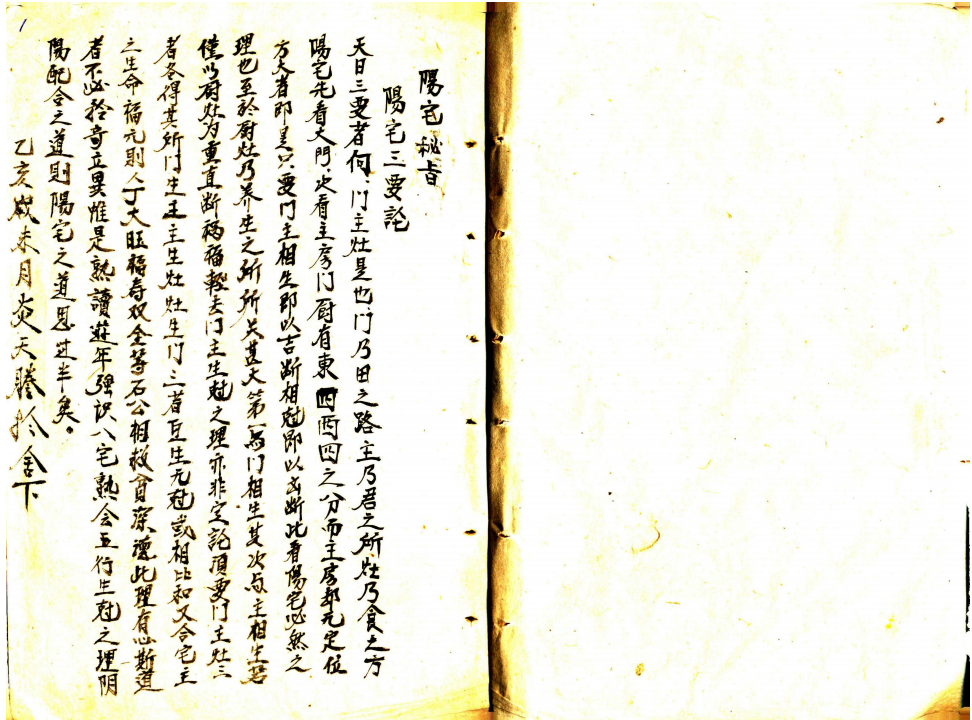 陽宅秘旨
陽宅三要訣
夫曰三要者何、门主灶是也、门乃由之路主乃居之所、灶乃食之方
陽宅先看大门、次看主房门厨有東四西四之分而主房却无定位
方大者即是只要门主相生即以吉断相尅即以凶断此看陽宅必然之
理也至於厨灶乃养生之所所关甚大第一与门相生其次与主相生若
僅以厨灶为重直断祸福輕去门主生尅之理亦非定訣須要门主灶三
者各得其所门生主主生灶灶生门三者互生无尅或相比和又合宅主
之生命福元則人丁大旺福寿双全等石公相救貧深德此理有心斯道
者不必拾奇立異惟是熟讀遊年强识八宅熟会五行生尅之理阴
陽配合之道則陽宅之道思过半矣。
乙亥歲未月炎天謄於舍下